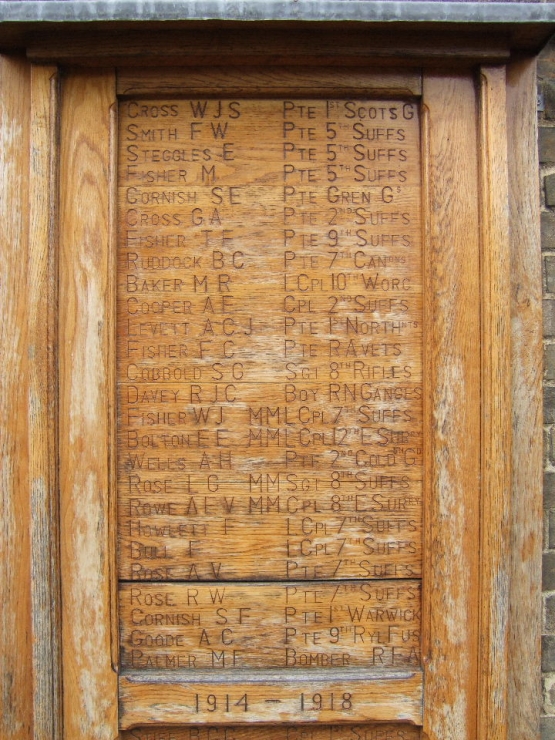 CROSS W J S PTE 1ST SCOTS G
SMITH F W PTE 5TH SUFFS
STEGGLES E PTE 5TH SUFFS
FISHER M PTE 5TH SUFFS
CORNISH S E PTE GREN GDS
CROSS G A PTE 2ND SUFFS
FISHER T F PTE 9TH SUFFS
RUDDOCK B C PTE 7TH CANDNS
BAKER M R LCPL 10TH WORC
COOPER A E CPL 2ND SUFFS
LEVETT A C J PTE 1ST NORTHTS
FISHER F C PTE R A VETS
COBBOLD S G SGT 8TH RIFLES
DAVEY R J C BOY R N GANGES
FISHER W J MM LCPL 7TH SUFFS
BOLTON E E MM LCPL 12TH E
WELLS A H PTE 2ND COLD GD
ROSE L G MM SGT 8TH SUFFS
ROWE A E V MM CPL 8TH E SUREY
HOWLETT F LCPL 7TH SUFFS
BULL F LCPL 7TH SUFFS
ROSE A V PTE 7TH SUFFS
ROSE R W PTE 7TH SUFFS
CORNISH S F PTE 1ST WARWICK
GOODE A C PTE 9TH RYL FUS
PALMER M F BOMBER R F A
1914 – 1918